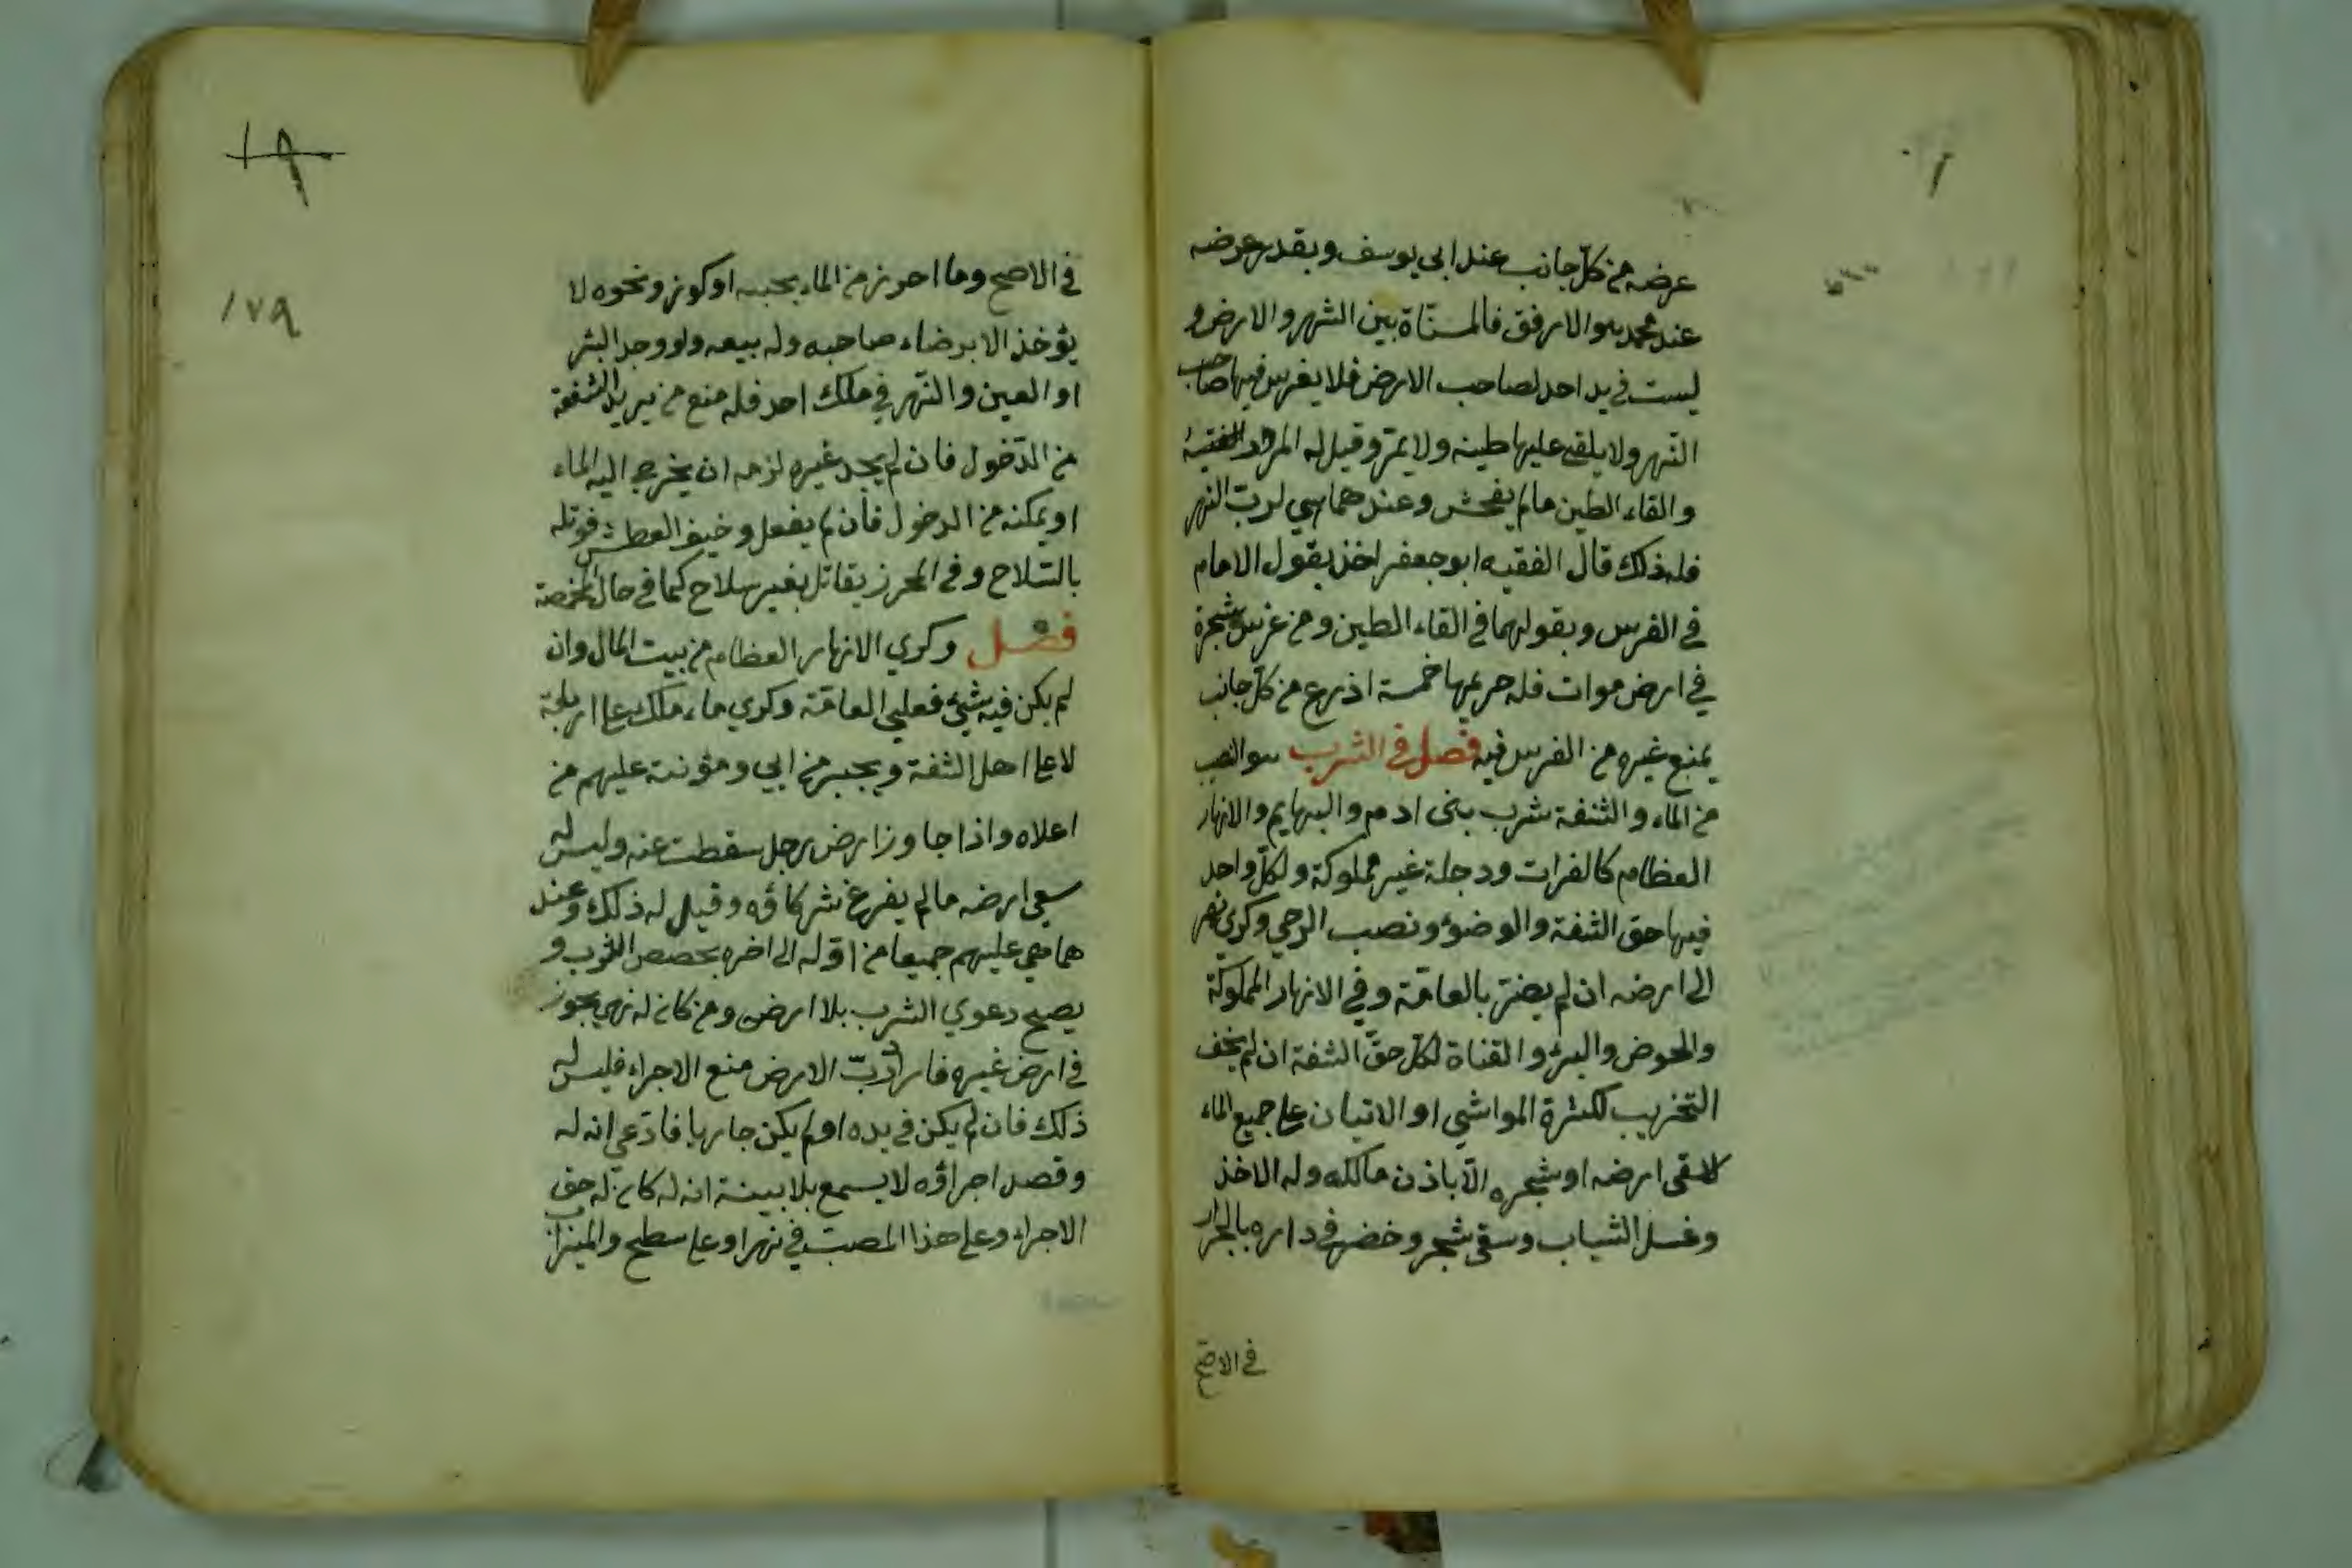 عرضه من كلّ جانب عند ابى يوسف وبقدر عرضه
عند محمد هو الارفق فالمسنّاة بين النهر والارض و
ليست فى يد احد لصاحب الارض فلا يغرس فيها صاحب
النّهر ولا يلقى عليها طينه ولا يمرّ وقيل له المرور
والقاء الطين مالم يفحش وعندهما هي لربّ النهر
فله ذلك قال الفقيه ابو جعفر اخذ بقول الامام
فى الغرس وبقولهما فى القاء الطين ومن غرس شجرة
فى ارض موات فله حريمها خمسة اذرع من كلّ جانب
يمنع غيره من الغرس فيه فصل فى الشرب هو النصيب
من الماء والشفة شرب بنى ادم والبهايم والانهار
العظام كالفرات ودجلة غير مملوكة ولكلّ واحد
فيها حق الشفة والوضوء ونصب الرحي وكري نهر
الى ارضه ان لم يضرّ بالعامّة وفي الانهار المملوكة
والحوض والبئر والقناة لكلّ حقّ الشفة ان لم يخف
التخريب لكثرة المواشي او الاتيان على جميع الماء
لاسقى ارضه او شجره الّا باذن مالكه وله الاخذ
وغسل الثياب وسقى شجر وخضر فى داره بالجرار
فى الاصح
١٧٩
فى الاصح وما احرز من الماء بحب او كوز ونحوه لا
يؤخذ الا برضاء صاحبه وله بيعه ولو وجد البئر
او العين والنّهر في ملك احد فله منع من يريد الشفة
من الدّخول فان لم يجد غيره لزمه ان يخرج اليه الماء
او يمكنه من الدخول فان لم يفعل وخيف العطش قوتله
بالسّلاح وفى المحرز يقاتل بغير سلاح كما في حال المخمصة
فصل وكري الانهار العظام من بيت المال وان
لم يكن فيه شيئ فعلى العامّة وكري ما ملك على اربابه
لا على اهل الشفة ويجبر من ابي ومؤنته عليهم من
اعلاه واذا جاوز ارض رجل سقطت عنه وليس له
سقى ارضه مالم يفرغ شركاؤه وقيل له ذلك وعند
هما هي عليهم جميعا من اوّله الى اخره بحصص الشرب و
يصح دعوي الشرب بلا ارض ومن كان له نهر يجوز
في ارض غيره فاراد ربّ الارض منع الاجراء فليس له
ذلك فان لم يكن في يده او لم يكن جاريا فادّعى انه له
وقصد اجراؤه لا يسمع بلا بينة انه له كان له حق
الاجراء وعلى هذا المصبّ في نهر او على سطح والميزاب